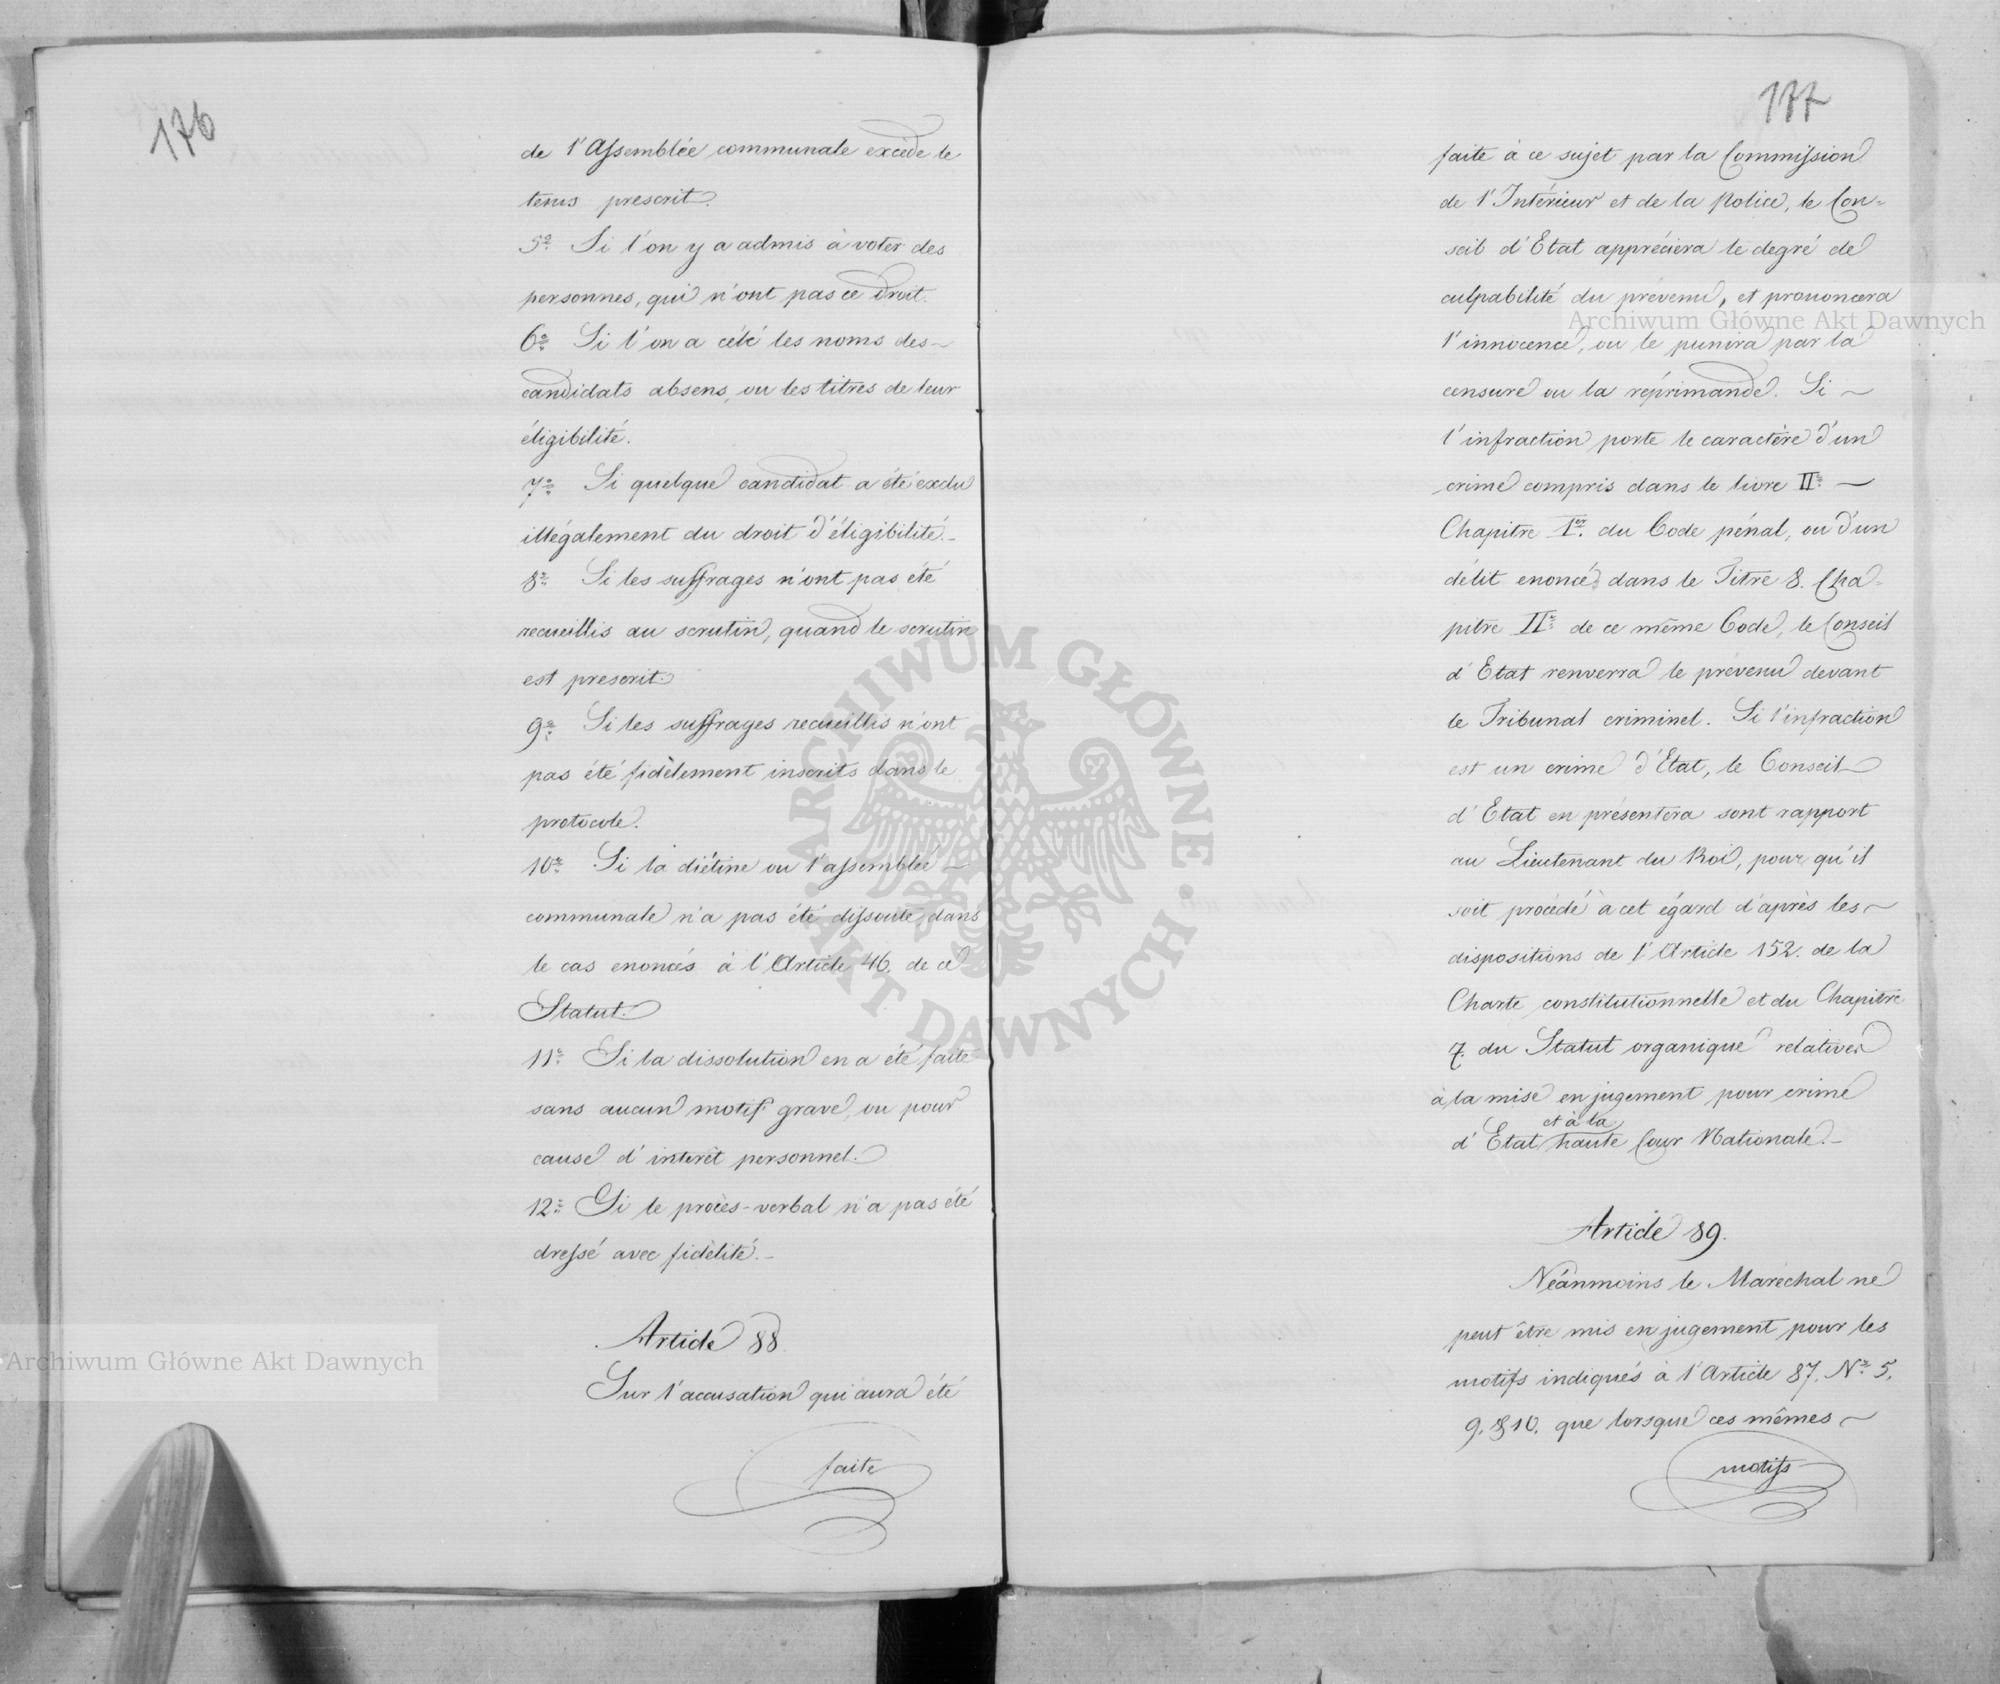 176
de l'Assemblée communale excède le
tems prescrit.
5º Si l'on y a admis à voter des
personnes, qui n'ont pas ce droit.
6º Si l'on a célé les noms des
candidats absens, ou les titres de leur
éligibilité.
7º Si quelque candidat a été exclu
illégalement du droit d'éligibilité.
8º Si les suffrages n'ont pas été
recueillis au scrutin, quand le scrutin
est prescrit.
9º Si les suffrages recueillis n'ont
pas été fidèlement inscrits dans le
protocole.
10º Si la diétine ou l'assemblée
communale n'a pas été dissoute, dans
le cas enoncés à l'Article 46. de ce
Statut.
11º Si la dissolution en a été faite
sans aucun motif grave, ou pour
cause d'interêt personnel.
12º Si le procès-verbal n'a pas été
dressé avec fidélité.
Article 88.
Sur l'accusation qui aura été
faite
177
faite à ce sujet par la Commission
de l'Intérieur et de la Police, le Con-
seil d'Etat appréciera le degré de
culpabilité du prévenu, et prononcera
l'innocence, ou le punira par la
censure ou la réprimande. Si
l'infraction porte le caractère d'un
crime compris dans le livre IIe
Chapitre Ier du Code pénal, ou d'un
délit enoncé dans le Titre 8. Cha-
pitre IIe de ce même Code, le Conseil
d'Etat renverra le prévenu devant
le Tribunal criminel. Si l'infraction
est un crime d'Etat, le Conseil
d'Etat en présentera sont rapport
au Lieutenant du Roi, pour qu'il
soit procédé à cet égard d'après les
dispositions de l'Article 152. de la
Charte constitutionnelle et du Chapitre
7. du Statut organique relatives
à la mise en jugement pour crime
et à la
d'Etat haute Cour Nationale.
Article 89.
Néanmoins le Maréchal ne
peut être mis en jugement pour les
motifs indiqués à l'Article 87. Nº 5.
9. & 10. que lorsque ces mêmes
motifs
Archiwum Główne Akt Dawnych
ARCHIWUM GŁÓWNE · AKT DAWNYCH ·
Archiwum Główne Akt Dawnych